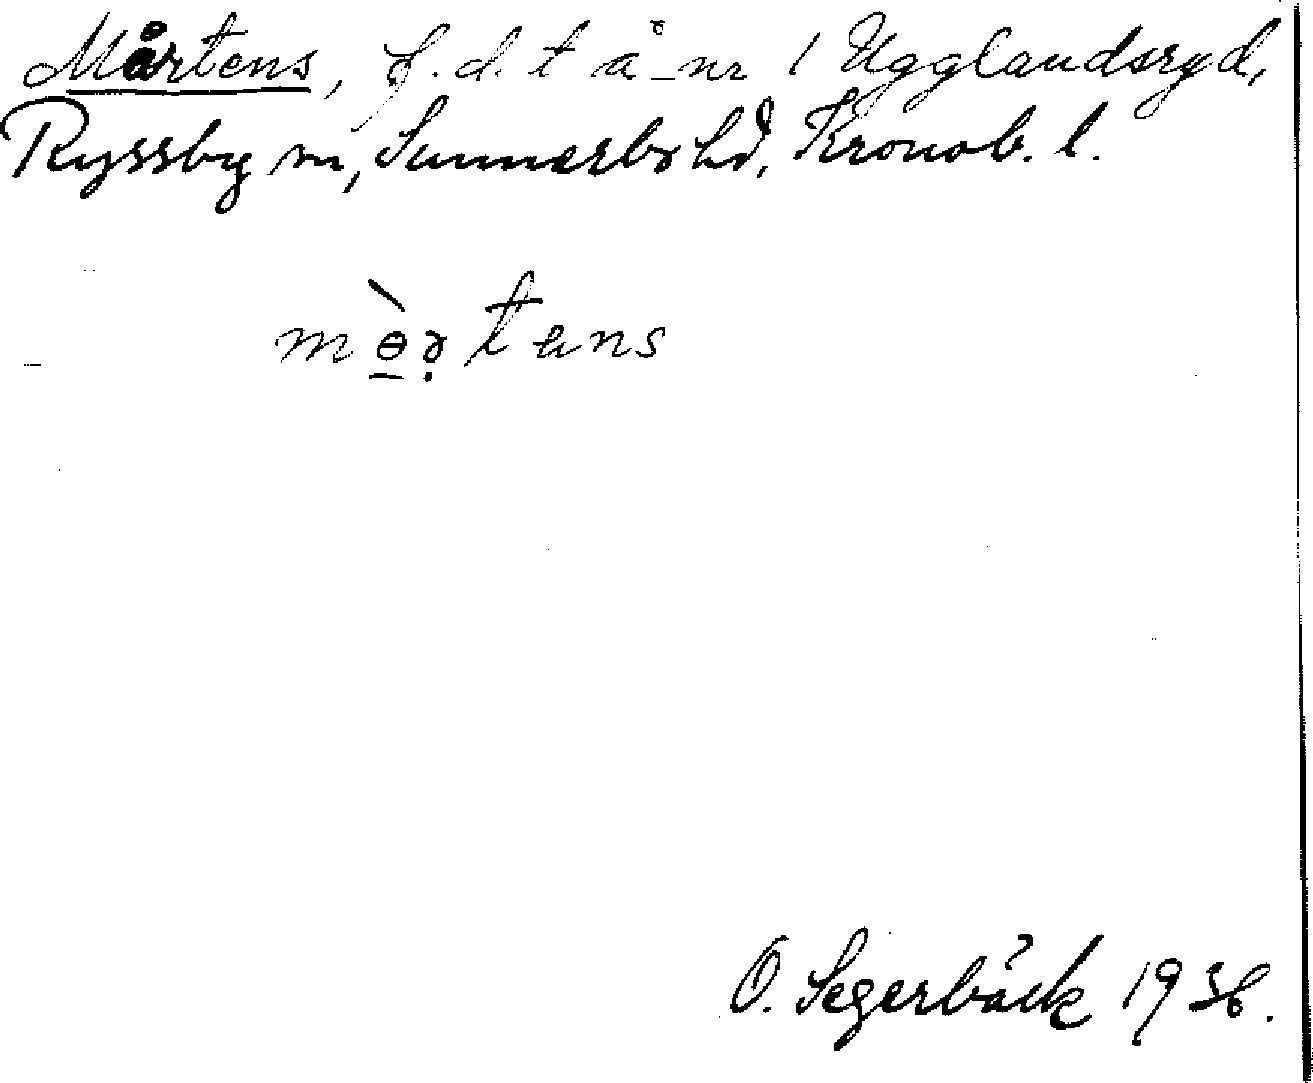 Mårtens, f.d. t å nr 1 Ugglandsryd,
Ryssby sn, Sunnerbo hd, Kronob. l.
O. Segerbäck 1936.